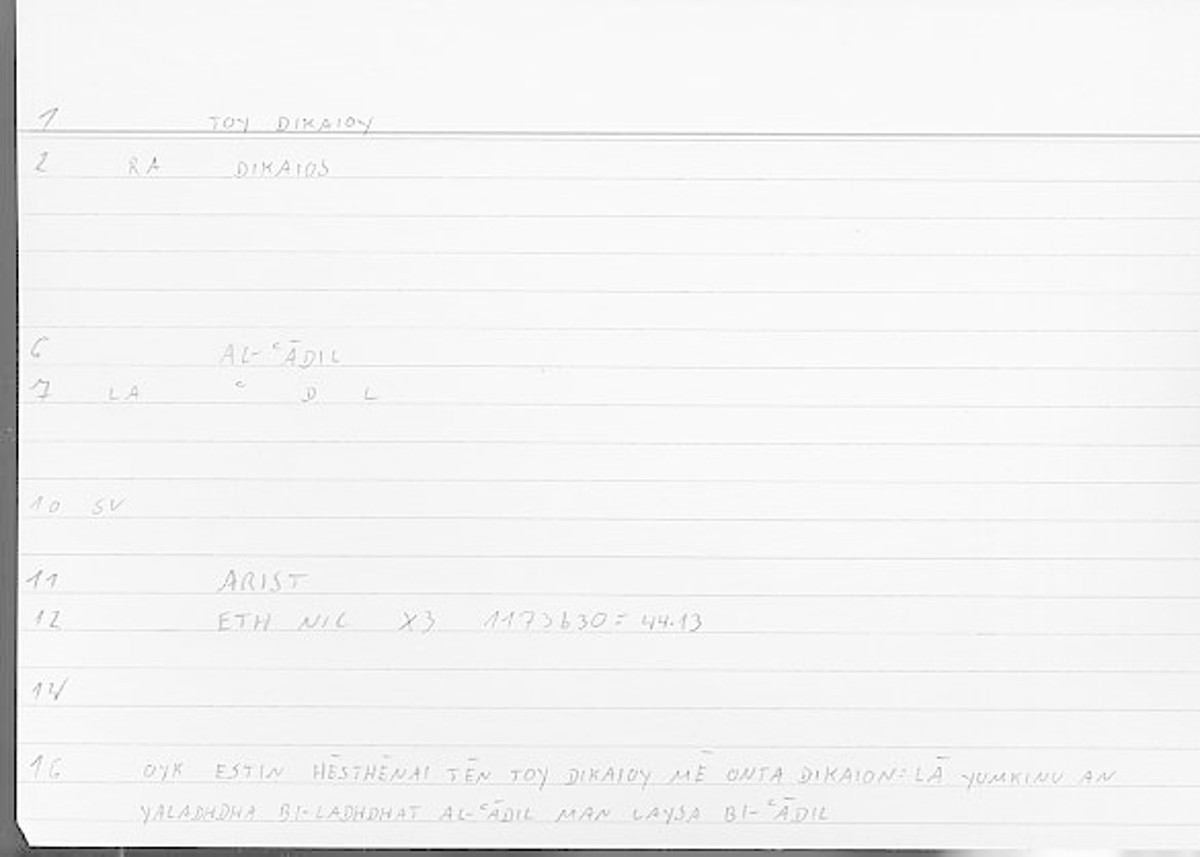 1 TOY DIKAIOY
2 RA DIKAIOS
6 AL-ʿĀDIL
7 LA ʿ D L
10 SV
11 ARIST
12 ETH NIC X3 1173b30 = 44.13
14
16 OYK ESTIN HĒSTHĒNAI TĒN TOY DIKAIOY MĒ ONTA DIKAION: LĀ YUMKINU AN
YALADHDHA BI-LADHDHAT AL-ʿĀDIL MAN LAYSA BI-ʿĀDIL